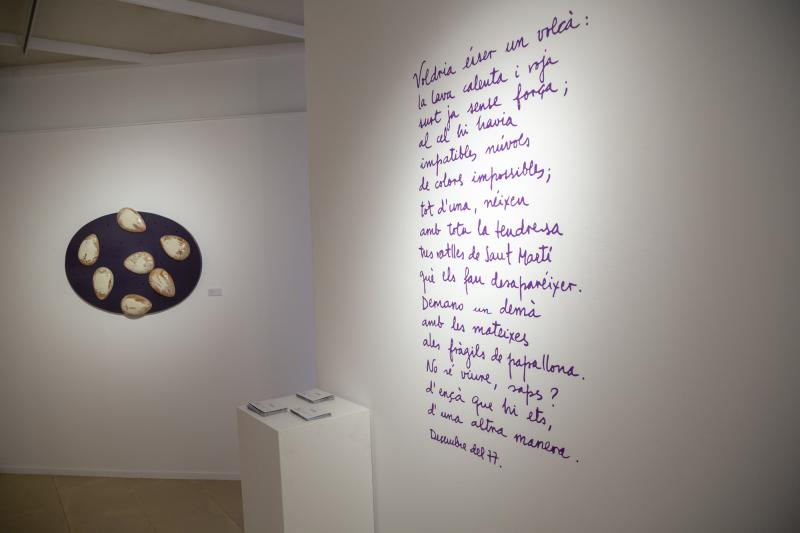 Voldria ésser un volcà:
la lava calenta i roja
surt ja sense força;
al cel hi havia
impatibles núvols
de colors impossibles;
tot d'una, néixen
amb tota la tendresa
tres ratlles de Sant Martí
què els fan desaparéixer.
Demano un demà
amb les mateixes
ales fràgils de papallona.
No sé viure, saps?
d'ençà que hi ets,
d'una altra manera.
Desembre del 77.